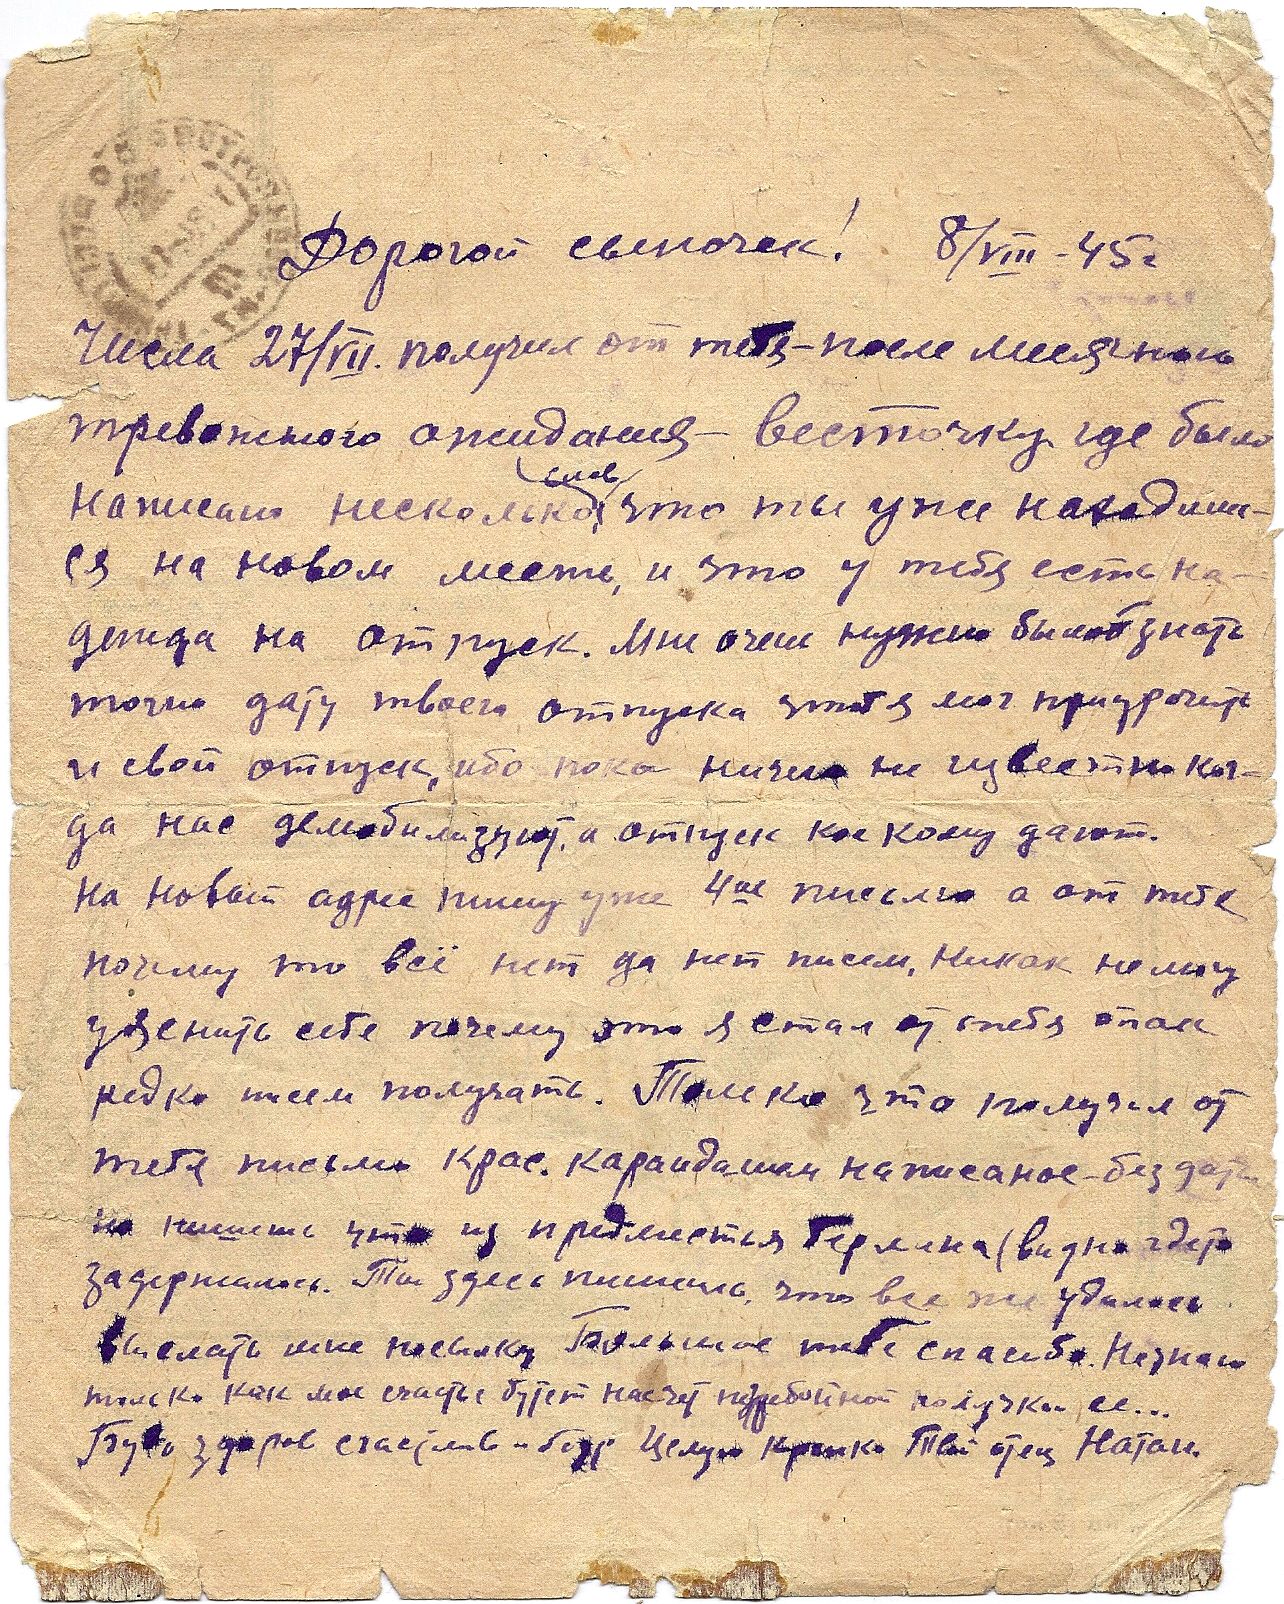 Дорогой сыночек! 8/VIII - 45 г
Числа 27/VII. получил от тебя - после месячного
тревожного ожидания - весточку где было
написано несколько слов что ты уже находишь-
ся на новом месте, и что у тебя есть на-
дежда на отпуск. Мне очень нужно было б знать
точно дату твоего отпуска чтоб я мог приурочить
и свой отпуск, ибо пока ничего не известно ког-
да нас демобилизуют, а отпуск кое кому дают.
На новый адрес пишу уже 4ое письмо а от тебя
почему то всё нет да нет писем. Никак не могу
уяснить себе почему это я стал от тебя так
редко писем получать. Только что получил от
тебя письмо крас. карандашом написаное - без даты
но пишешь что из предместья Берлина (видно где то
задержалось. Ты здесь пишешь, что все же удалось
выслать мне посылку Большое тебе спасибо. Не знаю
только как мое счастье будет насчет получки ее...
Будь здоров счастлив и бодр Целую крепко Твой отец Натан.